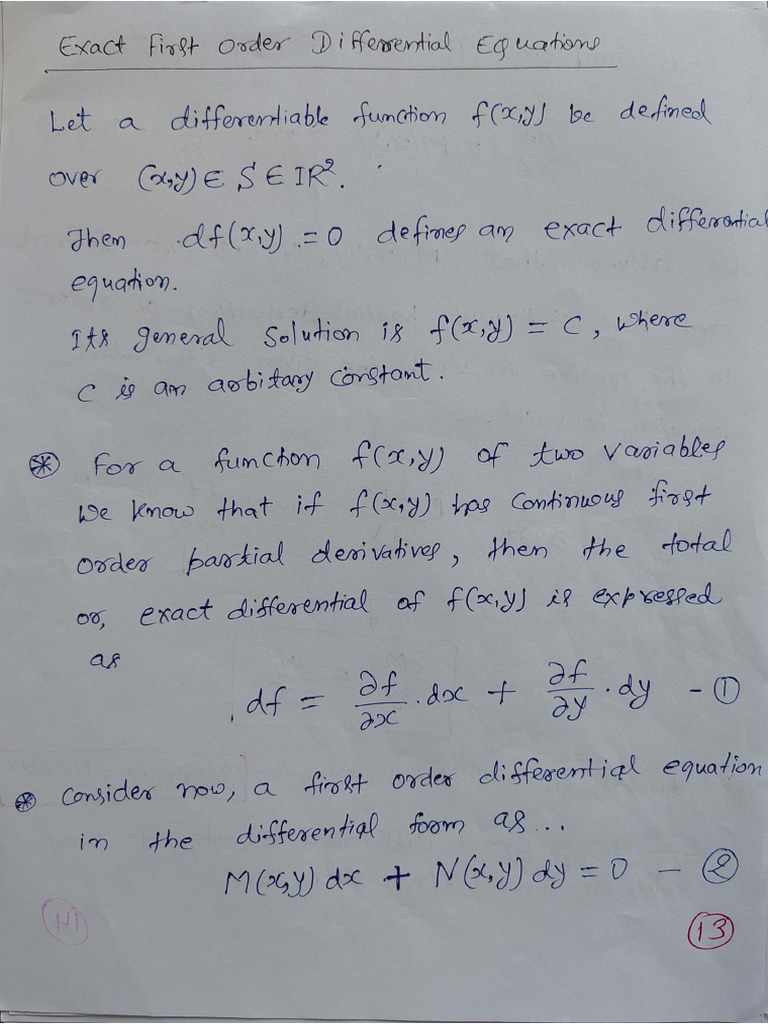 Exact First Order Differential Equations
Let a differentiable function f(x,y) be defined
over (x,y) ∈ S ∈ IR².
Then df(x,y) = 0 defines an exact differential
equation.
Its general solution is f(x,y) = C, where
C is an arbitary constant.
⊛ For a function f(x,y) of two variables
We know that if f(x,y) has continuous first
order partial derivatives, then the total
or, exact differential of f(x,y) is expressed
as
df = ∂f/∂x · dx + ∂f/∂y · dy - ①
⊛ Consider now, a first order differential equation
in the differential form as...
M(x,y) dx + N(x,y) dy = 0 - ②
13